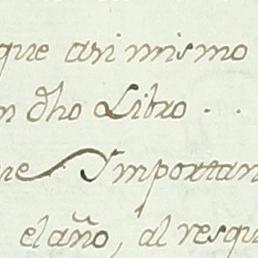 que asi mismo
n dho Libro . .
ue Importan
el año, al resqu